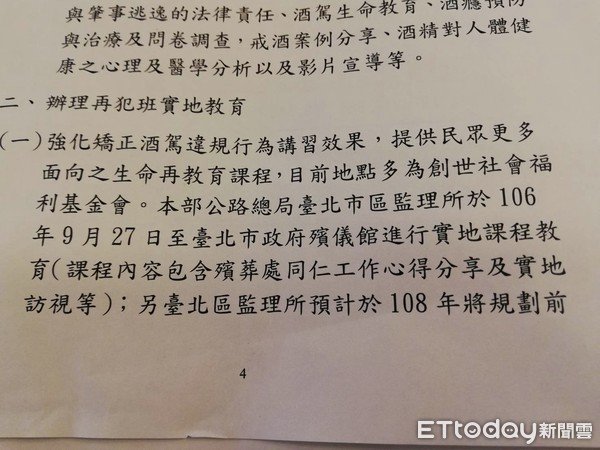 與肇事逃逸的法律責任、酒駕生命教育、酒癮預防
與治療及問卷調查，戒酒案例分享、酒精對人體健
康之心理及醫學分析以及影片宣導等。
二、辦理再犯班實地教育
(一)強化矯正酒駕違規行為講習效果，提供民眾更多
面向之生命再教育課程，目前地點多為創世社會福
利基金會。本部公路總局臺北市區監理所於 106
年 9 月 27 日至臺北市政府殯儀館進行實地課程教
育(課程內容包含殯葬處同仁工作心得分享及實地
訪視等)；另臺北區監理所預計於 108 年將規劃前
4
ETtoday新聞雲